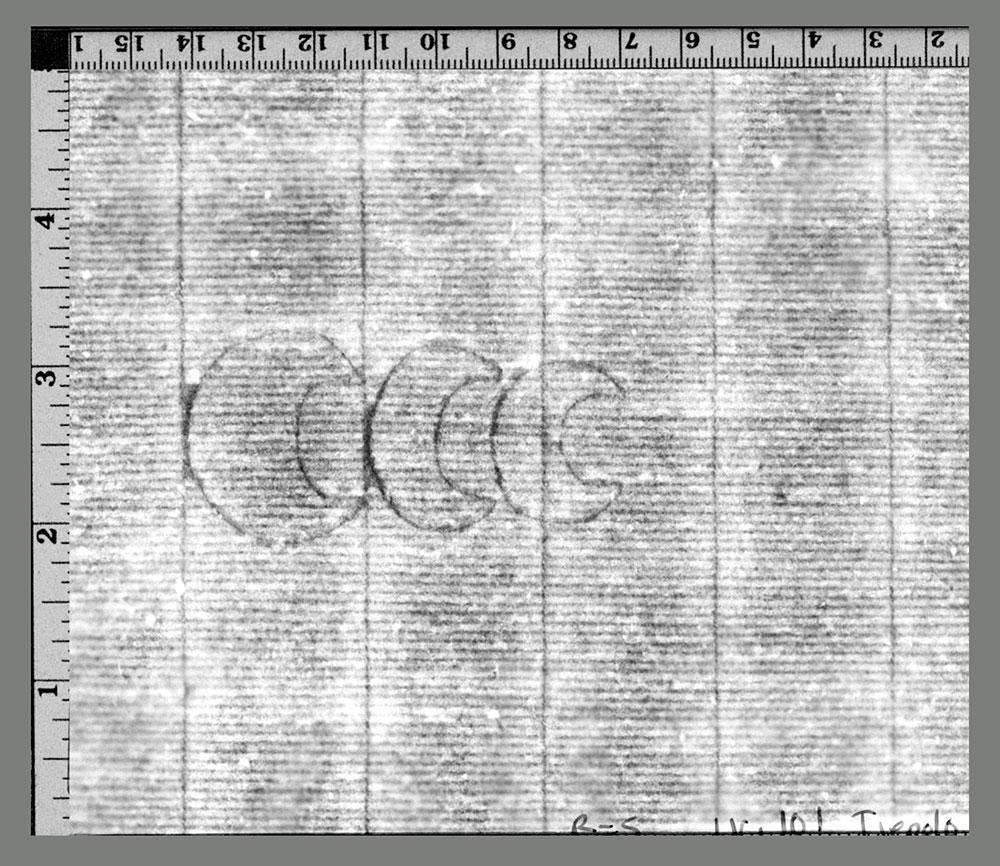 1 15 14 13 12 11 10 9 8 7 6 5 4 3 2
4
3
2
1